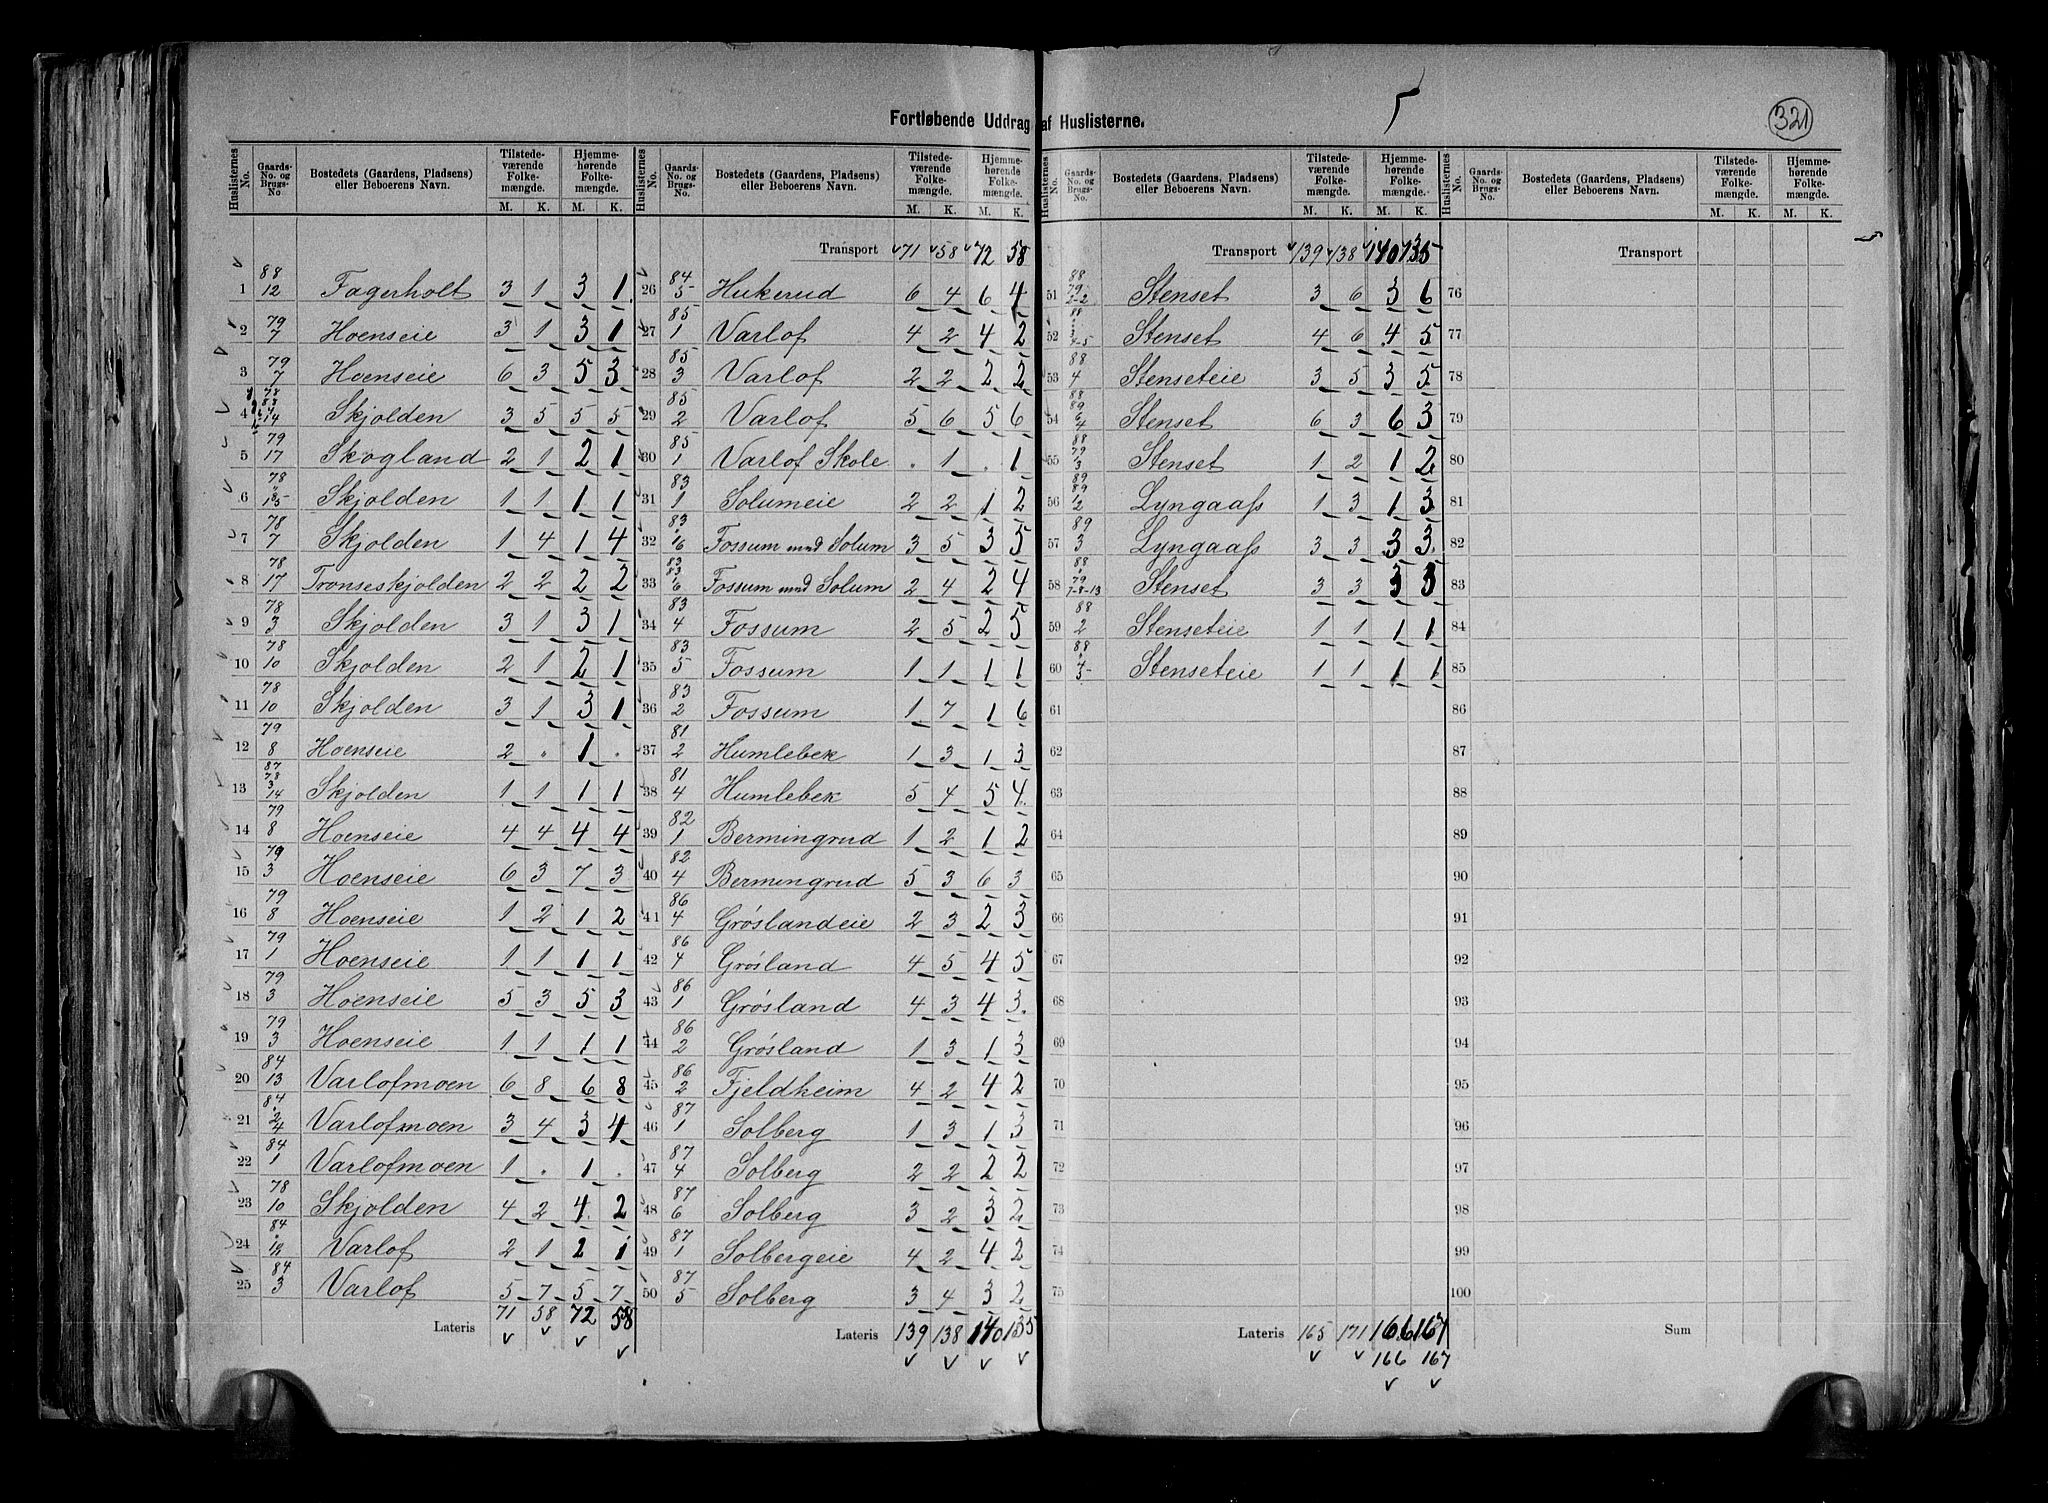 5
321
Fortløbende Uddrag af Huslisterne.
Huslisternes No. | Gaards-No. og Brugs-No | Bostedets (Gaardens, Pladsens) eller Beboerens Navn. | Tilstedeværende Folkemængde. M. K. | Hjemmehørende Folkemængde. M. K.
1 88 12 Fagerholt 3 1 3 1
2 79 7 Hoenseie 3 1 3 1
3 79 7 Hoenseie 6 3 5 3
4 Skjolden 3 5 5 5
5 79 17 Skogland 2 1 2 1
6 78 Skjolden 1 1 1 1
7 78 7 Skjolden 1 4 1 4
8 78 17 Tronseskjolden 2 2 2 2
9 78 3 Skjolden 3 1 3 1
10 78 10 Skjolden 2 1 2 1
11 78 10 Skjolden 3 1 3 1
12 79 8 Hoenseie 2 . 1 .
13 87 78 3 14 Skjolden 1 1 1 1
14 79 8 Hoenseie 4 4 4 4
15 79 3 Hoenseie 6 3 7 3
16 79 8 Hoenseie 1 2 1 2
17 79 1 Hoenseie 1 1 1 1
18 79 3 Hoenseie 5 3 5 3
19 79 3 Hoenseie 1 1 1 1
20 84 13 Varlofmoen 6 8 6 8
21 84 2 4 Varlofmoen 3 4 3 4
22 84 1 Varlofmoen 1 . 1 .
23 78 10 Skjolden 4 2 4 2
24 84 Varlof 2 1 2 1
25 84 3 Varlof 5 7 5 7
Lateris 71 58 72 58
Huslisternes No. | Gaards-No. og Brugs-No. | Bostedets (Gaardens, Pladsens) eller Beboerens Navn. | Tilstedeværende Folkemængde. M. K. | Hjemmehørende Folkemængde. M. K.
Transport 71 58 72 58
26 84 5 Hukerud 6 4 6 4
27 85 1 Varlof 4 2 4 2
28 85 3 Varlof 2 2 2 2
29 85 2 Varlof 5 6 5 6
30 85 1 Varlof Skole . 1 . 1
31 83 1 Solumeie 2 2 1 2
32 83 Fossum med Solum 3 5 3 5
33 83 83 6 Fossum med Solum 2 4 2 4
34 83 4 Fossum 2 5 2 5
35 83 5 Fossum 1 1 1 1
36 83 2 Fossum 1 7 1 6
37 81 2 Humlebek 1 3 1 3
38 81 4 Humlebek 5 4 5 4
39 82 1 Bermingrud 1 2 1 2
40 82 4 Bermingrud 5 3 6 3
41 86 4 Grøslandeie 2 3 2 3
42 86 4 Grøsland 4 5 4 5
43 86 1 Grøsland 4 3 4 3
44 86 2 Grøsland 1 3 1 3
45 86 2 Fjeldheim 4 2 4 2
46 87 1 Solberg 1 3 1 3
47 87 4 Solberg 2 2 2 2
48 87 6 Solberg 3 2 3 2
49 87 1 Solbergeie 4 2 4 2
50 87 5 Solberg 3 4 3 2
Lateris 139 138 140 135
Huslisternes No. | Gaards-No. og Brugs-No. | Bostedets (Gaardens, Pladsens) eller Beboerens Navn. | Tilstedeværende Folkemængde. M. K. | Hjemmehørende Folkemængde. M. K.
Transport 139 138 140 135
51 88 79 2-2 Stenset 3 6 3 6
52 88 3 4-5 Stenset 4 6 4 5
53 88 4 Stenseteie 3 5 3 5
54 88 89 6 4 Stenset 6 3 6 3
55 88 79 1 3 Stenset 1 2 1 2
56 89 89 1 2 Lyngaass 1 3 1 3
57 89 3 Lyngaass 3 3 3 3
58 88 79 7-8-13 Stenset 3 3 3 3
59 88 2 Stenseteie 1 1 1 1
60 88 Stenseteie 1 1 1 1
61
62
63
64
65
66
67
68
69
70
71
72
73
74
75
Lateris 165 171 166 167
166 167
Huslisternes No. | Gaards-No. og Brugs-No. | Bostedets (Gaardens, Pladsens) eller Beboerens Navn. | Tilstedeværende Folkemængde. M. K. | Hjemmehørende Folkemængde. M. K.
Transport
76
77
78
79
80
81
82
83
84
85
86
87
88
89
90
91
92
93
94
95
96
97
98
99
100
Sum